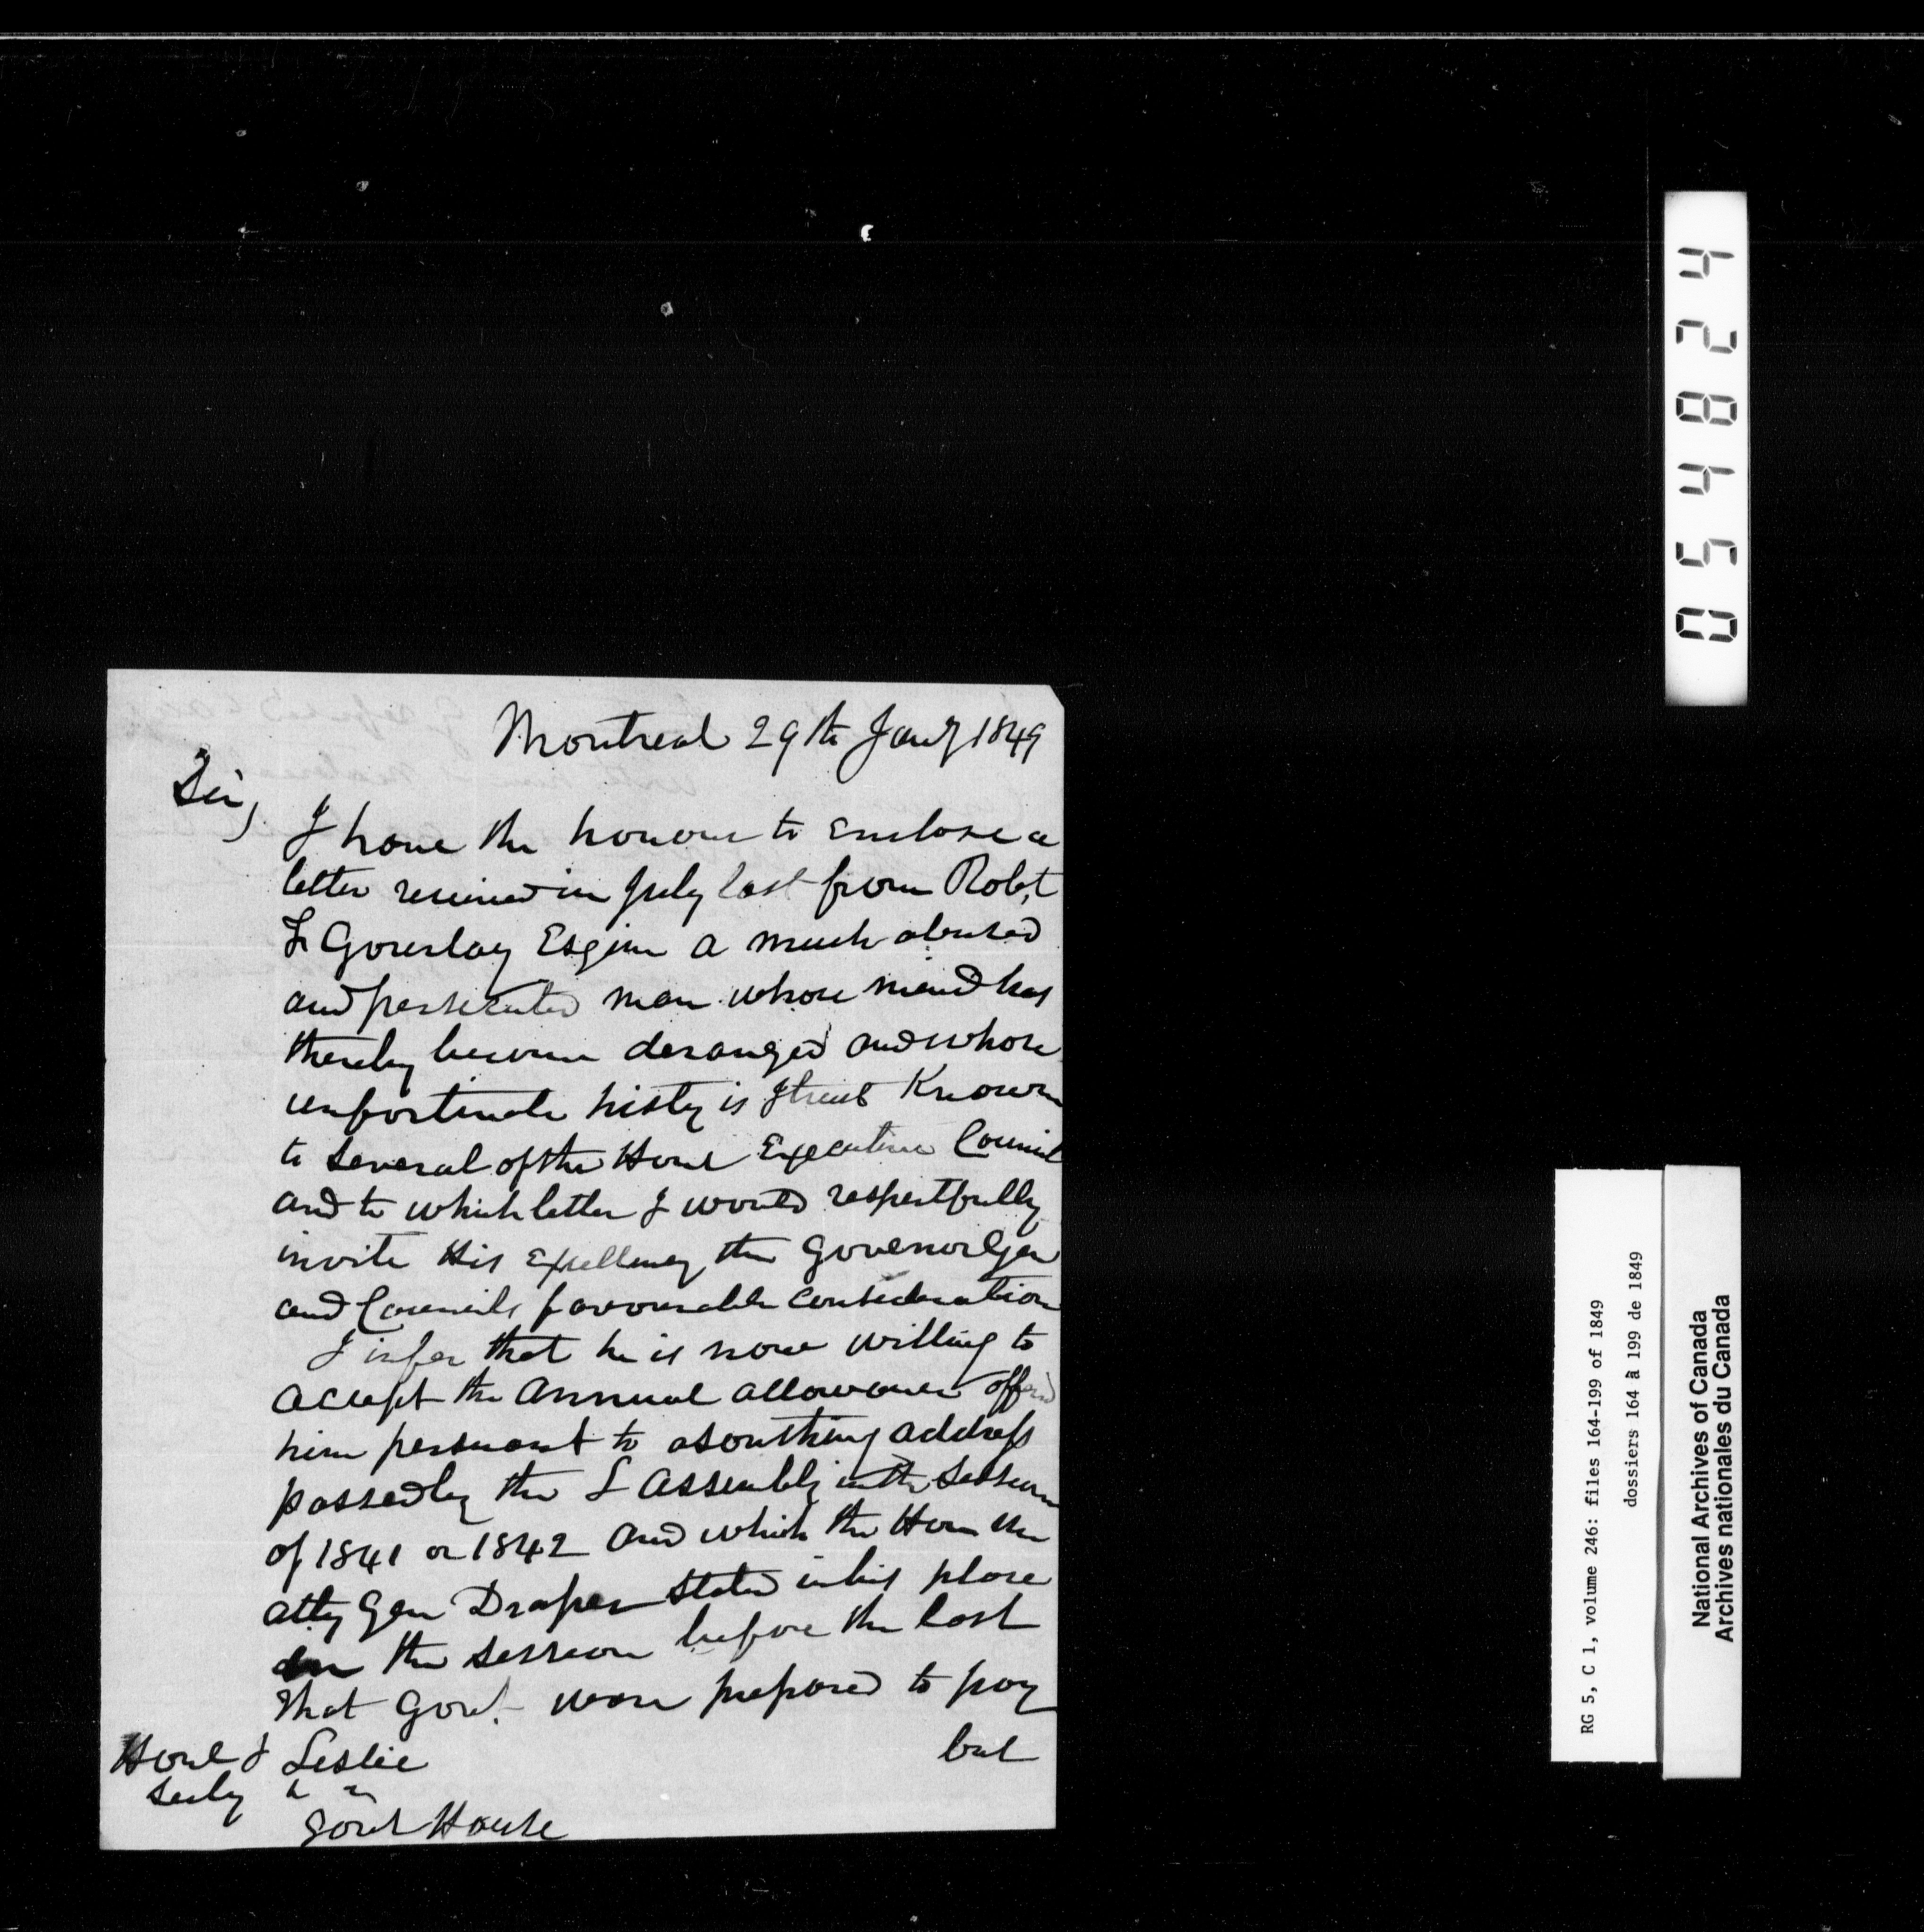 Montreal 29th Jany 1849
Sir,
I have the honour to Enclose a
letter received in July last from Robt
F Gourlay Esquire a much abused
and persecuted man whose mind has
thereby become deranged and whose
unfortunate histy is I trust Known
to several of the Honl Executive Council
and to which letter I would respectfully
invite His Excellency the Govenor Gen
and Councils favourable Consideration
I infer that he is now willing to
accept the Annual allowance offered
him persuant to a soothing address
passed by the L Assembly in the Session
of 1841 or 1842 and which the Hon the
atty Gen Draper stated in his place
in the session before the last
that Govt were prepared to pay
but
Honl J Leslie
Secty
Govt House
054824
RG 5, C 1, volume 246: files 164-199 of 1849
dossiers 164 à 199 de 1849
National Archives of Canada
Archives nationales du Canada